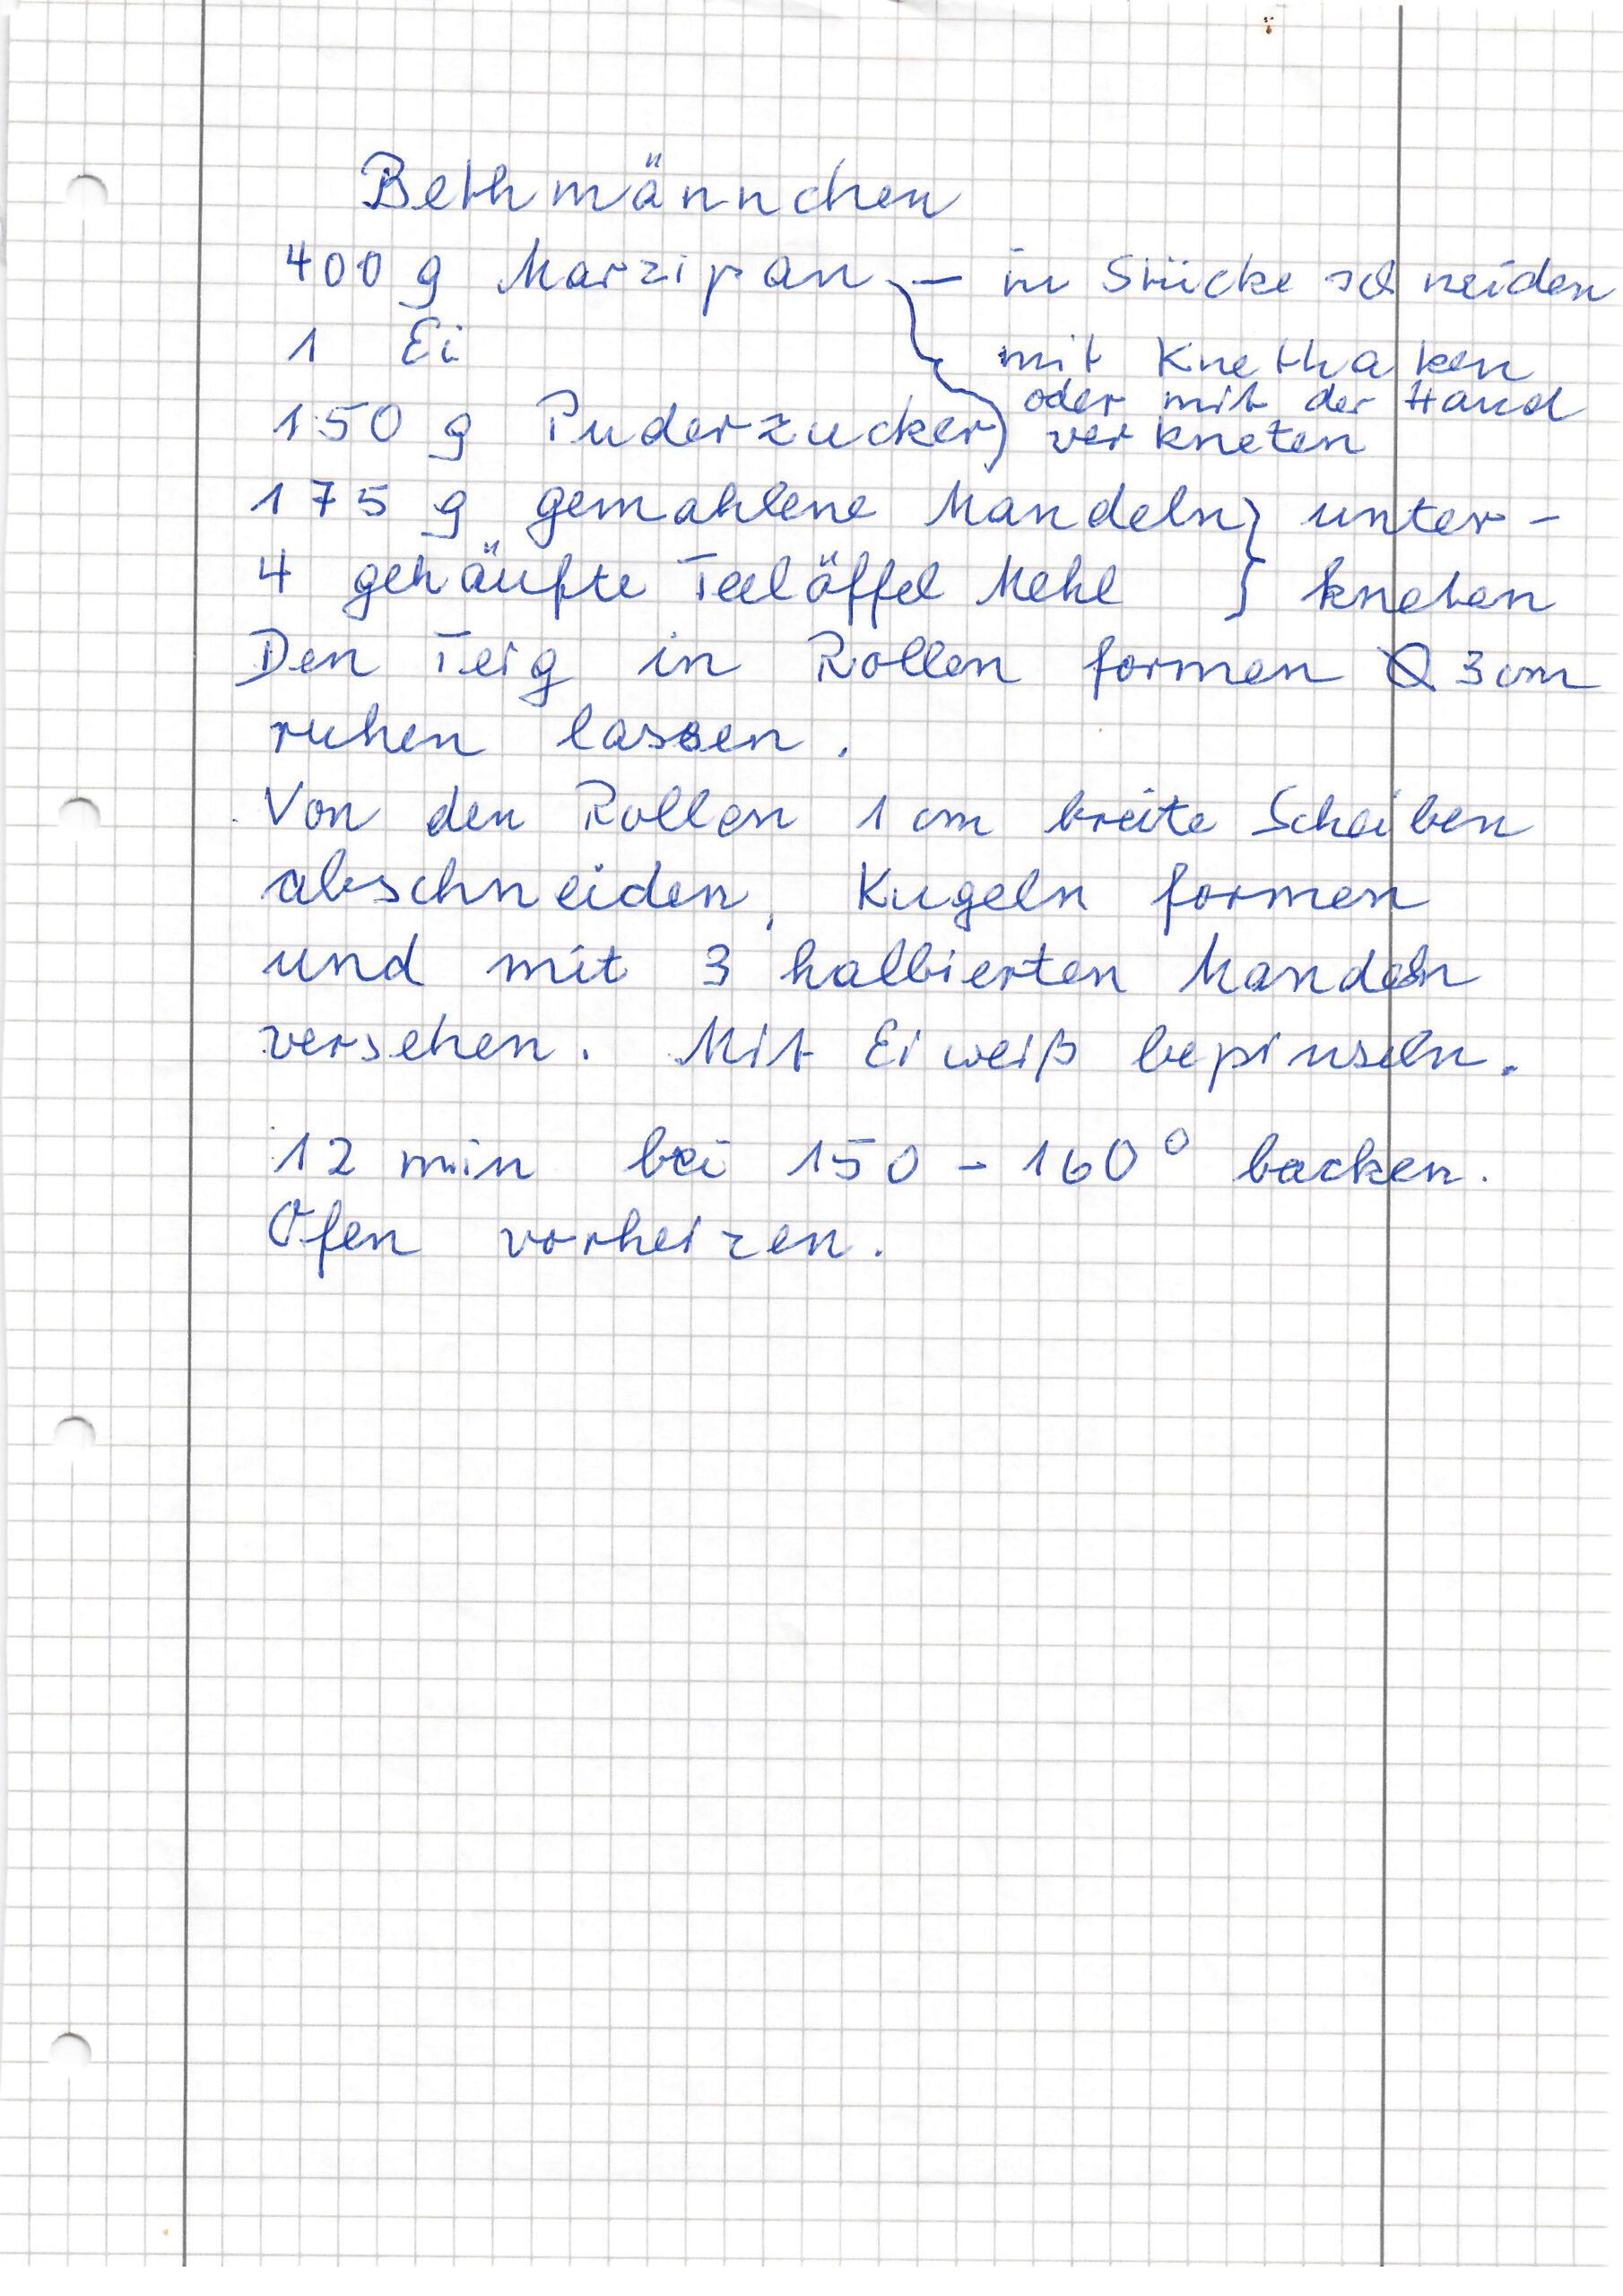 Bethmännchen
400 g Marzipan — in Stücke schneiden
1 Ei
mit Knethaken
oder mit der Hand
150 g Puderzucker) verkneten
175 g gemahlene Mandeln } unter-
4 gehäufte Teelöffel Mehl } kneten
Den Teig in Rollen formen Ø 3 cm
ruhen lassen.
Von den Rollen 1 cm breite Scheiben
abschneiden, Kugeln formen
und mit 3 halbierten Mandeln
versehen. Mit Eiweiß bepinseln.
12 min bei 150 - 160° backen.
Ofen vorheizen.